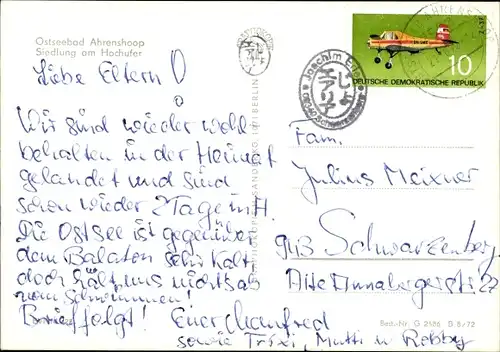 Ostseebad Ahrenshoop
Siedlung am Hochufer
Liebe Eltern!
Wir sind wieder wohl
behalten in der Heimat
gelandet und sind
schon wieder 2 Tage in A.
Die Ostsee ist gegenüber
dem Balaton sehr kalt
doch hält uns nichts ab
vom Schwimmen!
Brief folgt! Euer Manfred
sowie Trixi, Mutti u. Robby
10
DEUTSCHE DEMOKRATISCHE REPUBLIK
Joachim
Fam.
Julius Meixner
9413 Schwarzenberg
Alte Annabergerstr. 22
Best.-Nr. G 2186 D 8/72